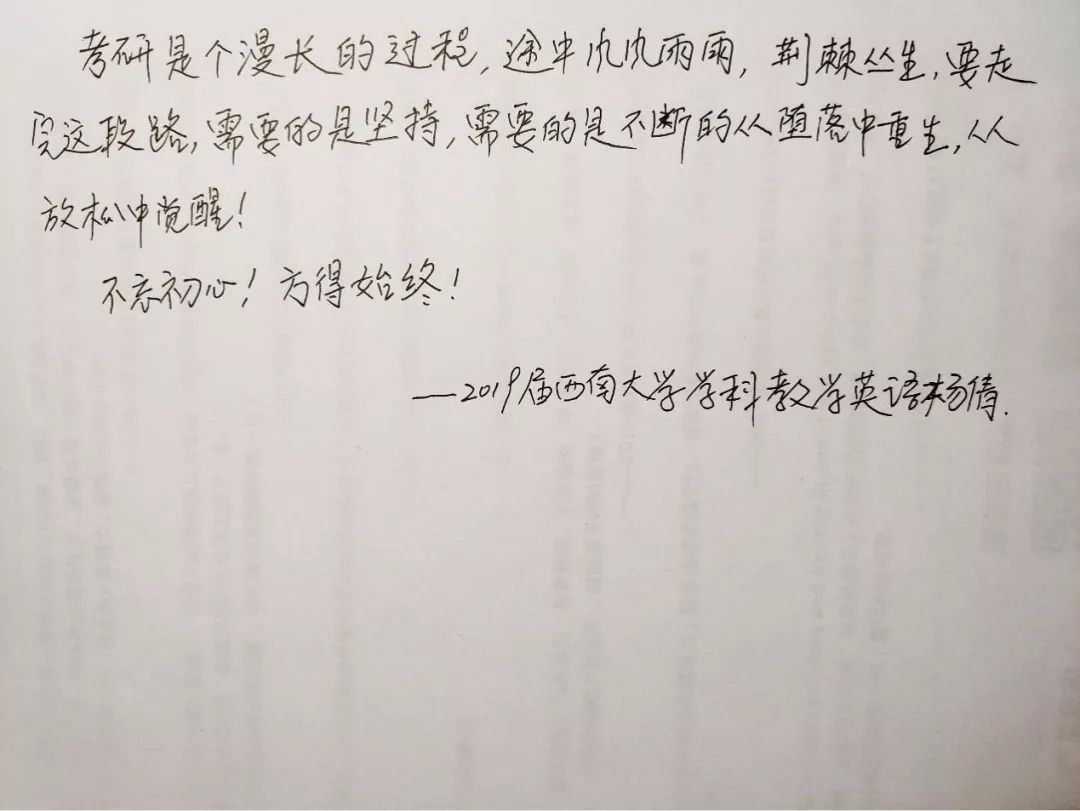 考研是个漫长的过程,途中风风雨雨,荆棘丛生,要走
完这段路,需要的是坚持,需要的是不断的从堕落中重生,从
放松中觉醒!
不忘初心!方得始终!
—2019届西南大学学科教学英语杨倩.